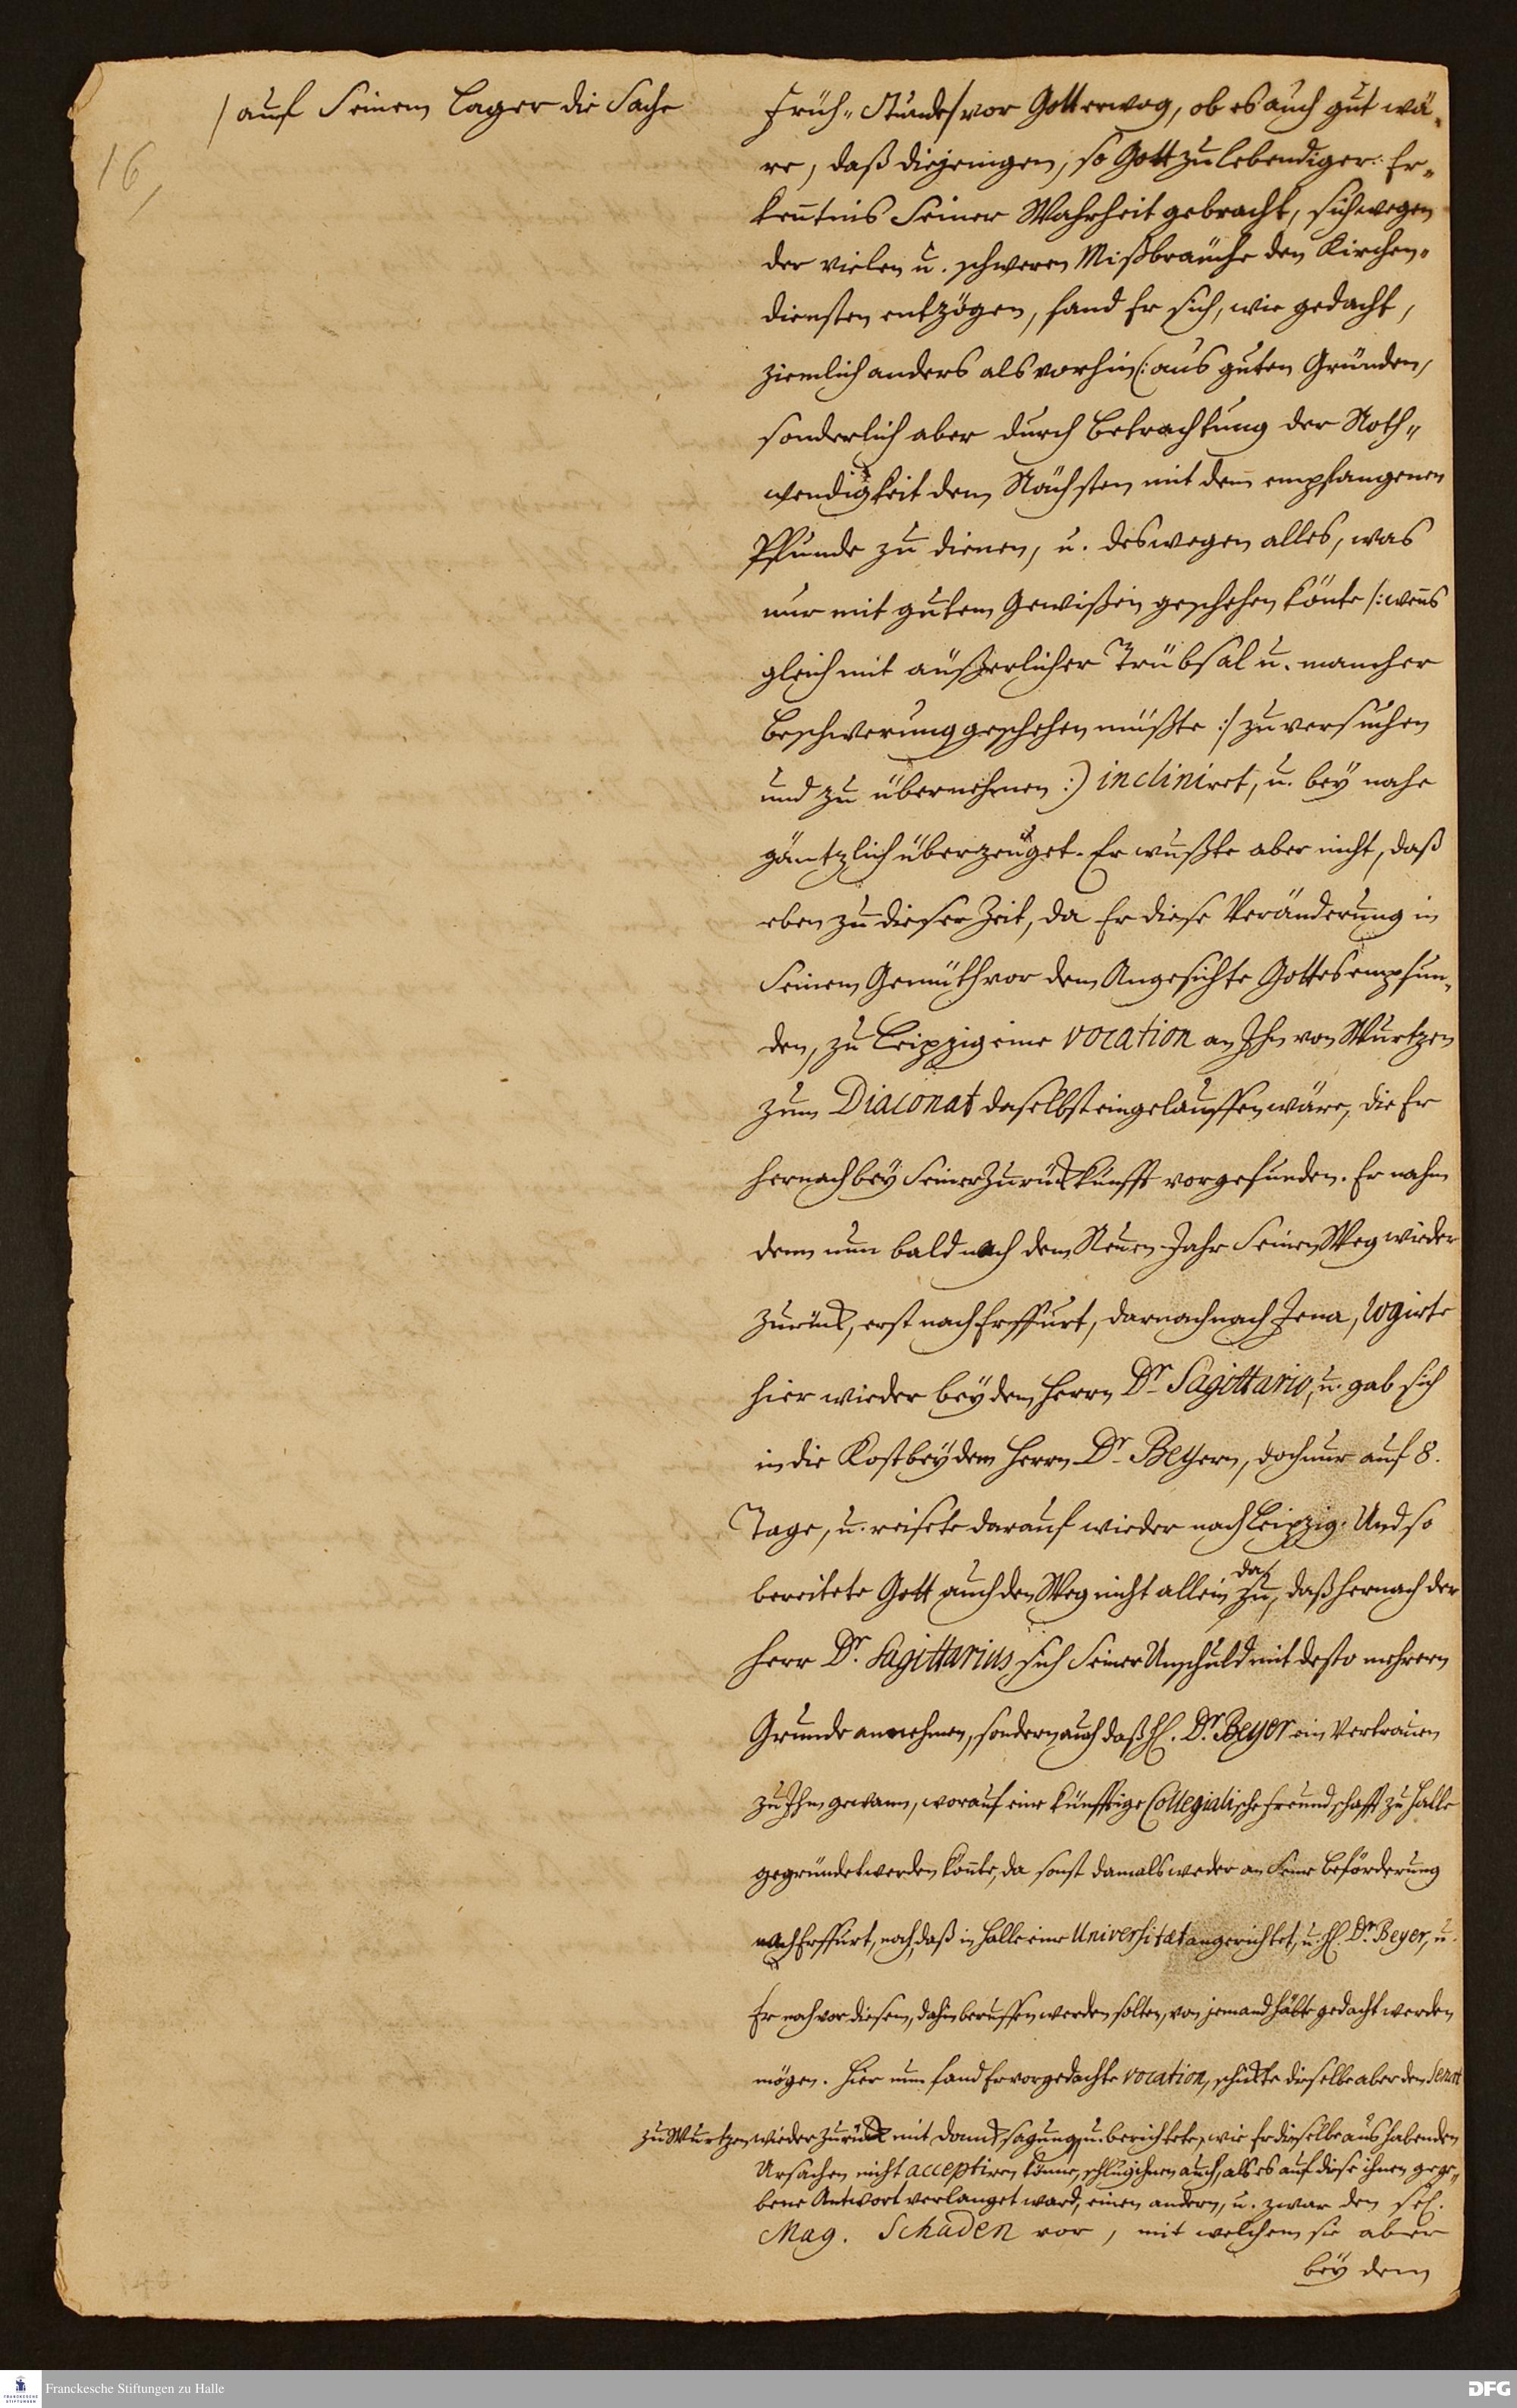 / auf Seinem Lager die Sache
16,
Früh-Stunde / vor Gott erwog, ob es auch gut wä-
re, daß diejenigen, so Gott zu lebendiger Er-
kentnis Seiner Wahrheit gebracht, sich wegen
der vielen u. schweren Mißbräuche den Kirchen-
diensten entzögen, fand Er sich, wie gedacht,
ziemlich anders als vorhin (: aus guten Gründen,
sonderlich aber durch Betrachtung der Noth-
wendigkeit dem Nächsten mit dem empfangenen
Pfunde zu dienen, u. deswegen alles, was
nur mit gutem Gewißen geschehen könte /: wens
gleich mit äußerlicher Trübsal u. mancher
Beschwerung geschehen müßte :/ zu versuchen
und zu übernehmen :) incliniret, u. bey nahe
gäntzlich überzeuget. Er wußte aber nicht, daß
eben zu dieser Zeit, da Er diese Veränderung in
Seinem Gemüth vor dem Angesichte Gottes empfun-
den, zu Leipzig eine vocation an Ihn von Wurtzen
zum Diaconat daselbst eingelauffen wäre, die Er
hernach bey Seiner Zurückkunfft vorgefunden. Er nahm
denn nun bald nach dem Neuen-Jahr Seinen Weg wieder
zurück, erst nach Erffurt, darnach nach Jena, logirte
hier wieder bey dem Herrn Dr. Sagittario, u. gab sich
in die Kost bey dem Herrn Dr. Beyern, doch nur auf 8.
Tage, u. reisete darauf wieder nach Leipzig. Und so
bereitete Gott auch den Weg nicht allein dazu, daß hernach der
Herr Dr. Sagittarius sich Seiner Unschuld mit desto mehrern
Grunde annehmen, sondern auch daß H. Dr. Beyer ein Vertrauen
zu Ihm gewann, worauf eine künfftige Collegialische Freundschafft zu Halle
gegründet werden könte, da sonst damals weder an Seine Beförderung
nach Erffurt, noch, daß in Halle eine Universitæt angerichtet, u. H. Dr. Beyer, u.
Er noch vor diesem, dahin beruffen werden solten, von jemand hätte gedacht werden
mögen. Hier nun fand Er vorgedachte vocation, schickte dieselbe aber dem Senat
zu Wurtzen wieder zurück mit Dancksagung, u. berichtete, wie Er dieselbe aus habenden
Ursachen nicht acceptiren könne, schlug ihnen auch, als es auf diese ihnen gege-
bene Antwort verlanget ward, einen andern, u. zwar den sel.
Mag. Schaden vor, mit welchem sie aber
bey dem
Franckesche Stiftungen zu Halle
DFG